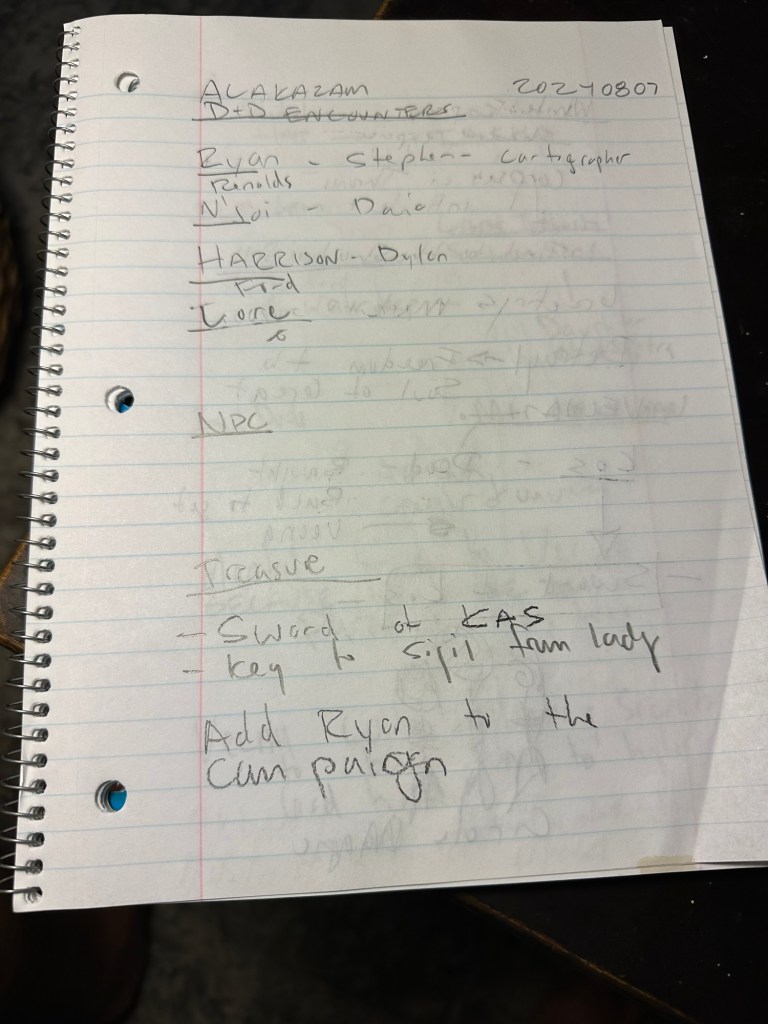 ALAKAZAM 20240807
D+D ENCOUNTERS
Ryan - Stephen - Cartographer
Renolds
N'Joi -
HARRISON - Dylan
Ford
Lore
6
NPC
Treasure
- Sword of KAS
- Key to Sigil from lady
Add Ryan to the
Campaign